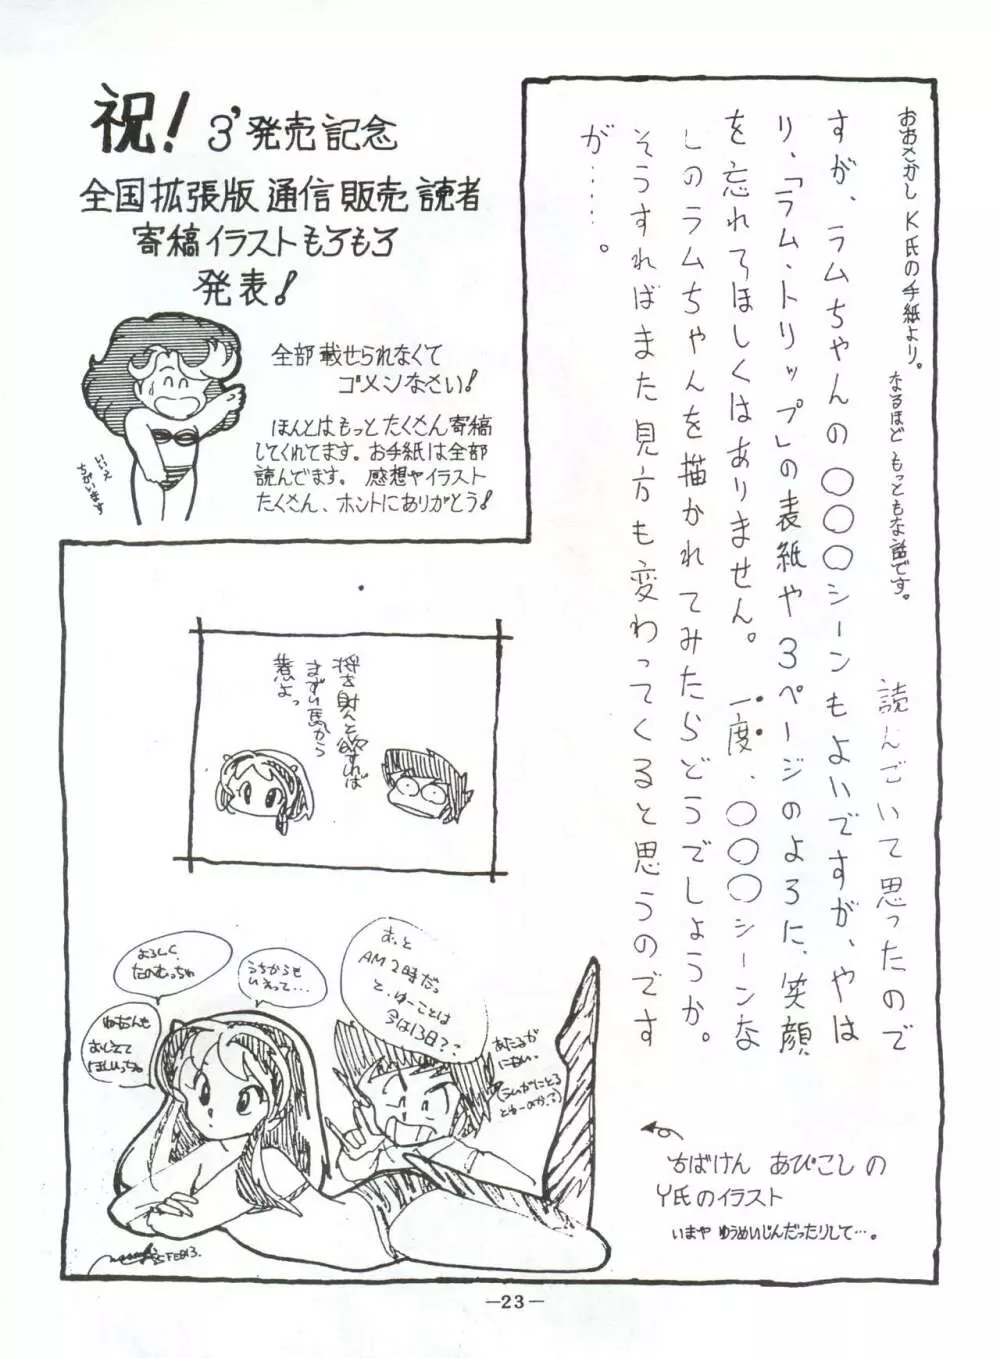 祝! 3'発売記念
全国拡張版 通信販売 読者
寄稿イラストもろもろ
発表!
全部載せられなくて
ゴメンなさい!
ほんとはもっとたくさん寄稿
してくれてます。お手紙は全部
読んでます。感想やイラスト
たくさん、ホントにありがとう!
いいえ
ちがいます
おおさかし K氏の手紙より。
なるほど もっともな話です。
読んでいて思ったので
すが、ラムちゃんの〇〇〇シーンもよいですが、やは
り、「ラム・トリップ」の表紙や3ページのように、笑顔
を忘れてほしくはありません。一度、〇〇〇シーンな
しのラムちゃんを描かれてみたらどうでしょうか。
そうすればまた見方も変わってくると思うのです
が……。
将を射んと欲すれば
まずい馬から
慧よっ
よろしく
たのむっちゃ
うちからも
いえって…
おっと
AM2時だっ
と、ゆーことは
今は13日?
ちばけん あびこし の
Y氏のイラスト
いまや ゆうめいじんだったりして…。
—23—